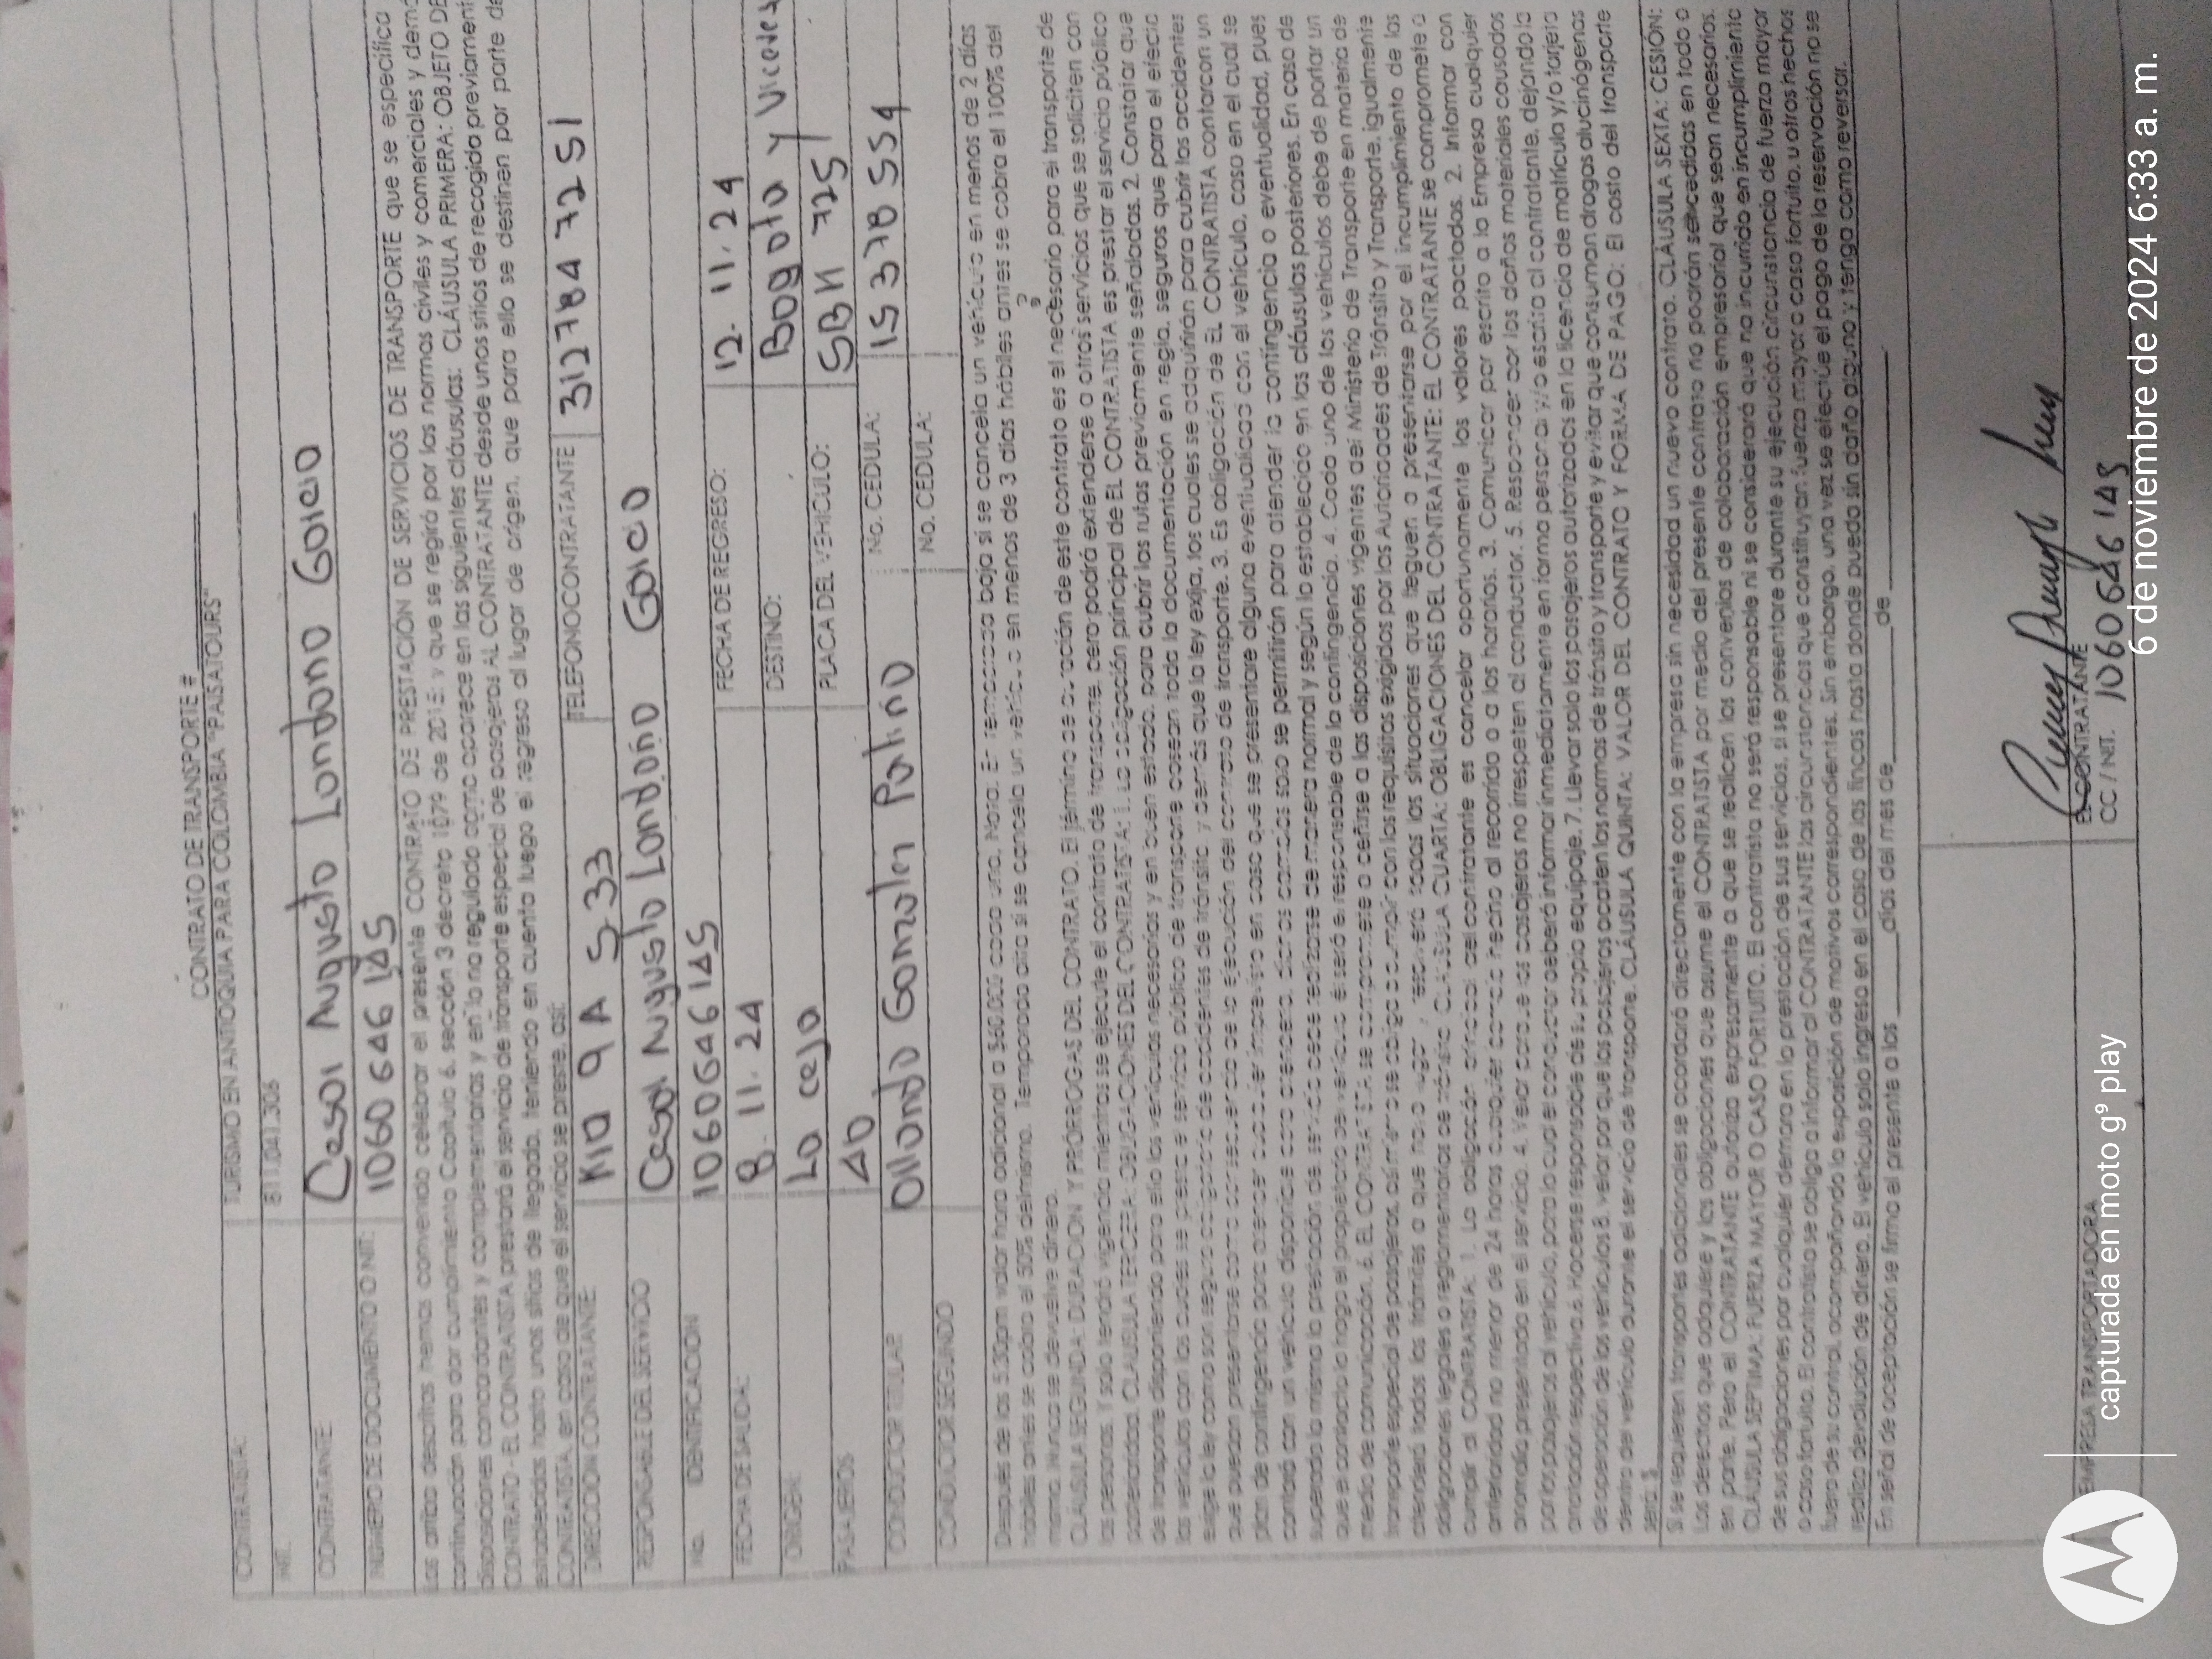 CONTRATO DE TRANSPORTE #
CONTRATISTA: TURISMO EN ANTIOQUIA PARA COLOMBIA "PAISATOURS"
NIT. 811.041.306
CONTRATANTE: Cesar Augusto Londono Garcia
NUMERO DE DOCUMENTO O NIT: 1060 646 145
Los arriba descritos hemos convenido celebrar el presente CONTRATO DE PRESTACIÓN DE SERVICIOS DE TRANSPORTE que se especifica
continuación para dar cumplimiento Capítulo 6, sección 3 decreto 1079 de 2015; y que se regirá por las normas civiles y comerciales y demá
disposiciones concordantes y complementarias y en lo no regulado como aparece en las siguientes cláusulas: CLÁUSULA PRIMERA: OBJETO DE
CONTRATO - EL CONTRATISTA prestará el servicio de transporte especial de pasajeros AL CONTRATANTE desde unos sitios de recogida previament
establecidos hasta unos sitios de llegada, teniendo en cuenta luego el regreso al lugar de origen, que para ello se destinen por parte de
CONTRATISTA en caso de que el servicio se preste, así:
DIRECCIÓN CONTRATANTE: Kra 9 A 5-33 TELEFONO CONTRATANTE 312784 7251
RESPONSABLE DEL SERVICIO Cesar Augusto Londoño Garcia
No. IDENTIFICACION 1060646145
FECHA DE SALIDA: 8. 11. 24 FECHA DE REGRESO: 12. 11. 24
ORIGEN: La ceja DESTINO: Bogota y
PASAJEROS 40 PLACA DEL VEHICULO: 725
CONDUCTOR TITULAR Orlando Gonzalez Patiño No. CEDULA: 15 378 554
CONDUCTOR SEGUNDO No. CEDULA:
Después de las 5:30pm valor hora adicional a $60.000 cada una. Nota: En temporada baja si se cancela un vehículo en menos de 2 días
hábiles antes se cobra el 50% del mismo. Temporada alta si se cancela un vehículo en menos de 3 días hábiles antes se cobra el 100% del
mismo. Nunca se devuelve dinero.
CLÁUSULA SEGUNDA: DURACION Y PRÓRROGAS DEL CONTRATO. El término de duración de este contrato es el necesario para el transporte de
las personas. Y solo tendrá vigencia mientras se ejecute el contrato de transporte, pero podrá extenderse a otros servicios que se soliciten con
posterioridad. CLAUSULA TERCERA: OBLIGACIONES DEL CONTRATISTA: 1. La obligación principal de EL CONTRATISTA es prestar el servicio público
de transporte disponiendo para ello los vehículos necesarios y en buen estado, para cubrir las rutas previamente señaladas. 2. Constatar que
los vehículos con los cuales se preste el servicio público de transporte posean toda la documentación en regla, seguros que para el efecto
exige la ley como son seguro obligatorio de accidentes de tránsito y demás que la ley exija, los cuales se adquirirán para cubrir los accidentes
que puedan presentarse como consecuencia de la ejecución del contrato de transporte. 3. Es obligación de EL CONTRATISTA contar con un
plan de contingencia para atender cualquier imprevisto en caso que se presentare alguna eventualidad con el vehículo, caso en el cual se
contará con un vehículo disponible para atenderla, dichos cambios solo se permitirán para atender la contingencia o eventualidad, pues
superada la misma la prestación de servicio debe realizarse de manera normal y según lo establecido en las cláusulas posteriores. En caso de
que el contacto lo haga el propietario del vehículo él será el responsable de la contingencia. 4. Cada uno de los vehículos debe de portar un
medio de comunicación. 6. EL CONTRATISTA se compromete a ceñirse a las disposiciones vigentes del Ministerio de Transporte en materia de
transporte especial de pasajeros, así mismo se obliga a cumplir con los requisitos exigidos por las Autoridades de Tránsito y Transporte, igualmente
atenderá todos los trámites a que haya lugar y resolverá todas las situaciones que lleguen a presentarse por el incumplimiento de las
obligaciones legales o reglamentarias de tránsito. CLAUSULA CUARTA: OBLIGACIONES DEL CONTRATANTE: EL CONTRATANTE se compromete a
cumplir al CONTRATISTA: 1. La obligación principal del contratante es cancelar oportunamente los valores pactados. 2. Informar con
anterioridad no menor de 24 horas cualquier cambio hecho al recorrido o a los horarios. 3. Comunicar por escrito a la Empresa cualquier
anomalía presentada en el servicio. 4. Velar porque los pasajeros no irrespeten al conductor. 5. Responder por los daños materiales causados
por los pasajeros al vehículo, para lo cual el conductor deberá informar inmediatamente en forma personal y/o escrita al contratante, dejando la
anotación respectiva. 6. Hacerse responsable de su propio equipaje. 7. Llevar solo los pasajeros autorizados en la licencia de matrícula y/o tarjeta
de operación de los vehículos 8. velar por que los pasajeros acaten las normas de tránsito y transporte y evitar que consuman drogas alucinógenas
dentro del vehículo durante el servicio de transporte. CLÁUSULA QUINTA: VALOR DEL CONTRATO Y FORMA DE PAGO: El costo del transporte
será: $
Si se requieren transportes adicionales se acordará directamente con la empresa sin necesidad un nuevo contrato. CLÁUSULA SEXTA: CESIÓN:
Los derechos que adquiere y las obligaciones que asume el CONTRATISTA por medio del presente contrato no podrán ser cedidas en todo o
en parte. Pero el CONTRATANTE autoriza expresamente a que se realicen los convenios de colaboración empresarial que sean necesarios.
CLÁUSULA SEPTIMA: FUERZA MAYOR O CASO FORTUITO. El contratista no será responsable ni se considerará que ha incurrido en incumplimiento
de sus obligaciones por cualquier demora en la prestación de sus servicios, si se presentare durante su ejecución circunstancia de fuerza mayor
o caso fortuito. El contratista se obliga a informar al CONTRATANTE las circunstancias que constituyan fuerza mayor o caso fortuito, u otros hechos
fuera de su control, acompañando la exposición de motivos correspondientes. Sin embargo, una vez se efectúe el pago de la reservación no se
realiza devolución de dinero. El vehículo solo ingresa en el caso de las fincas hasta donde pueda sin daño alguno y tenga como reversar.
En señal de aceptación se firma el presente a los ______ días del mes de ______ de ______
EMPRESA TRANSPORTADORA EL CONTRATANTE
CC / NIT. 1060646145
capturada en moto g⁹ play 6 de noviembre de 2024 6:33 a. m.